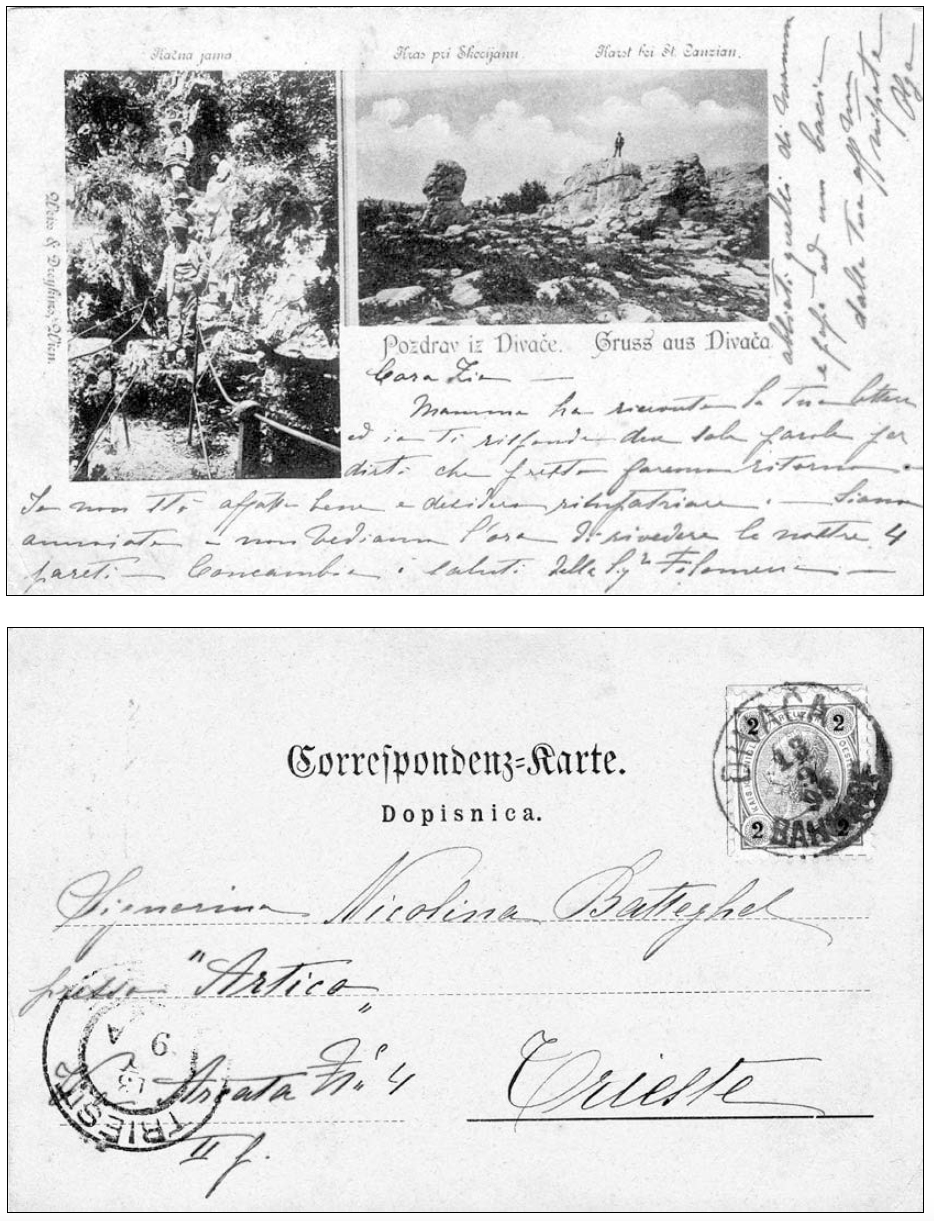 Kačna jama
Kras pri Škocijanu.
Karst bei St. Canzian.
Weiss & Dreykurs, Wien.
Pozdrav iz Divače. Gruss aus Divača
Cara Zia —
Mamma ha ricevuto la tua lettera
ed io ti rispondo due sole parole per
dirti che presto faremo ritorno —
Io non sto affatto bene e desidero rimpatriare. — Siamo
annoiate e non vediamo l'ora di rivedere le nostre 4
pareti — Concambia i saluti della Sig.ra Filomena —
abbiati quelli di mamma
e ed un bacio
dalla tua aff.ma
nipote
Olga
Correspondenz-Karte.
Dopisnica.
2 2
2 2
DIVAČA
13
BAHNHOF
Signorina Nicolina Batteghel
presso "Artico"
Via Arcata No 4
II p.
Trieste
TRIEST
9 A